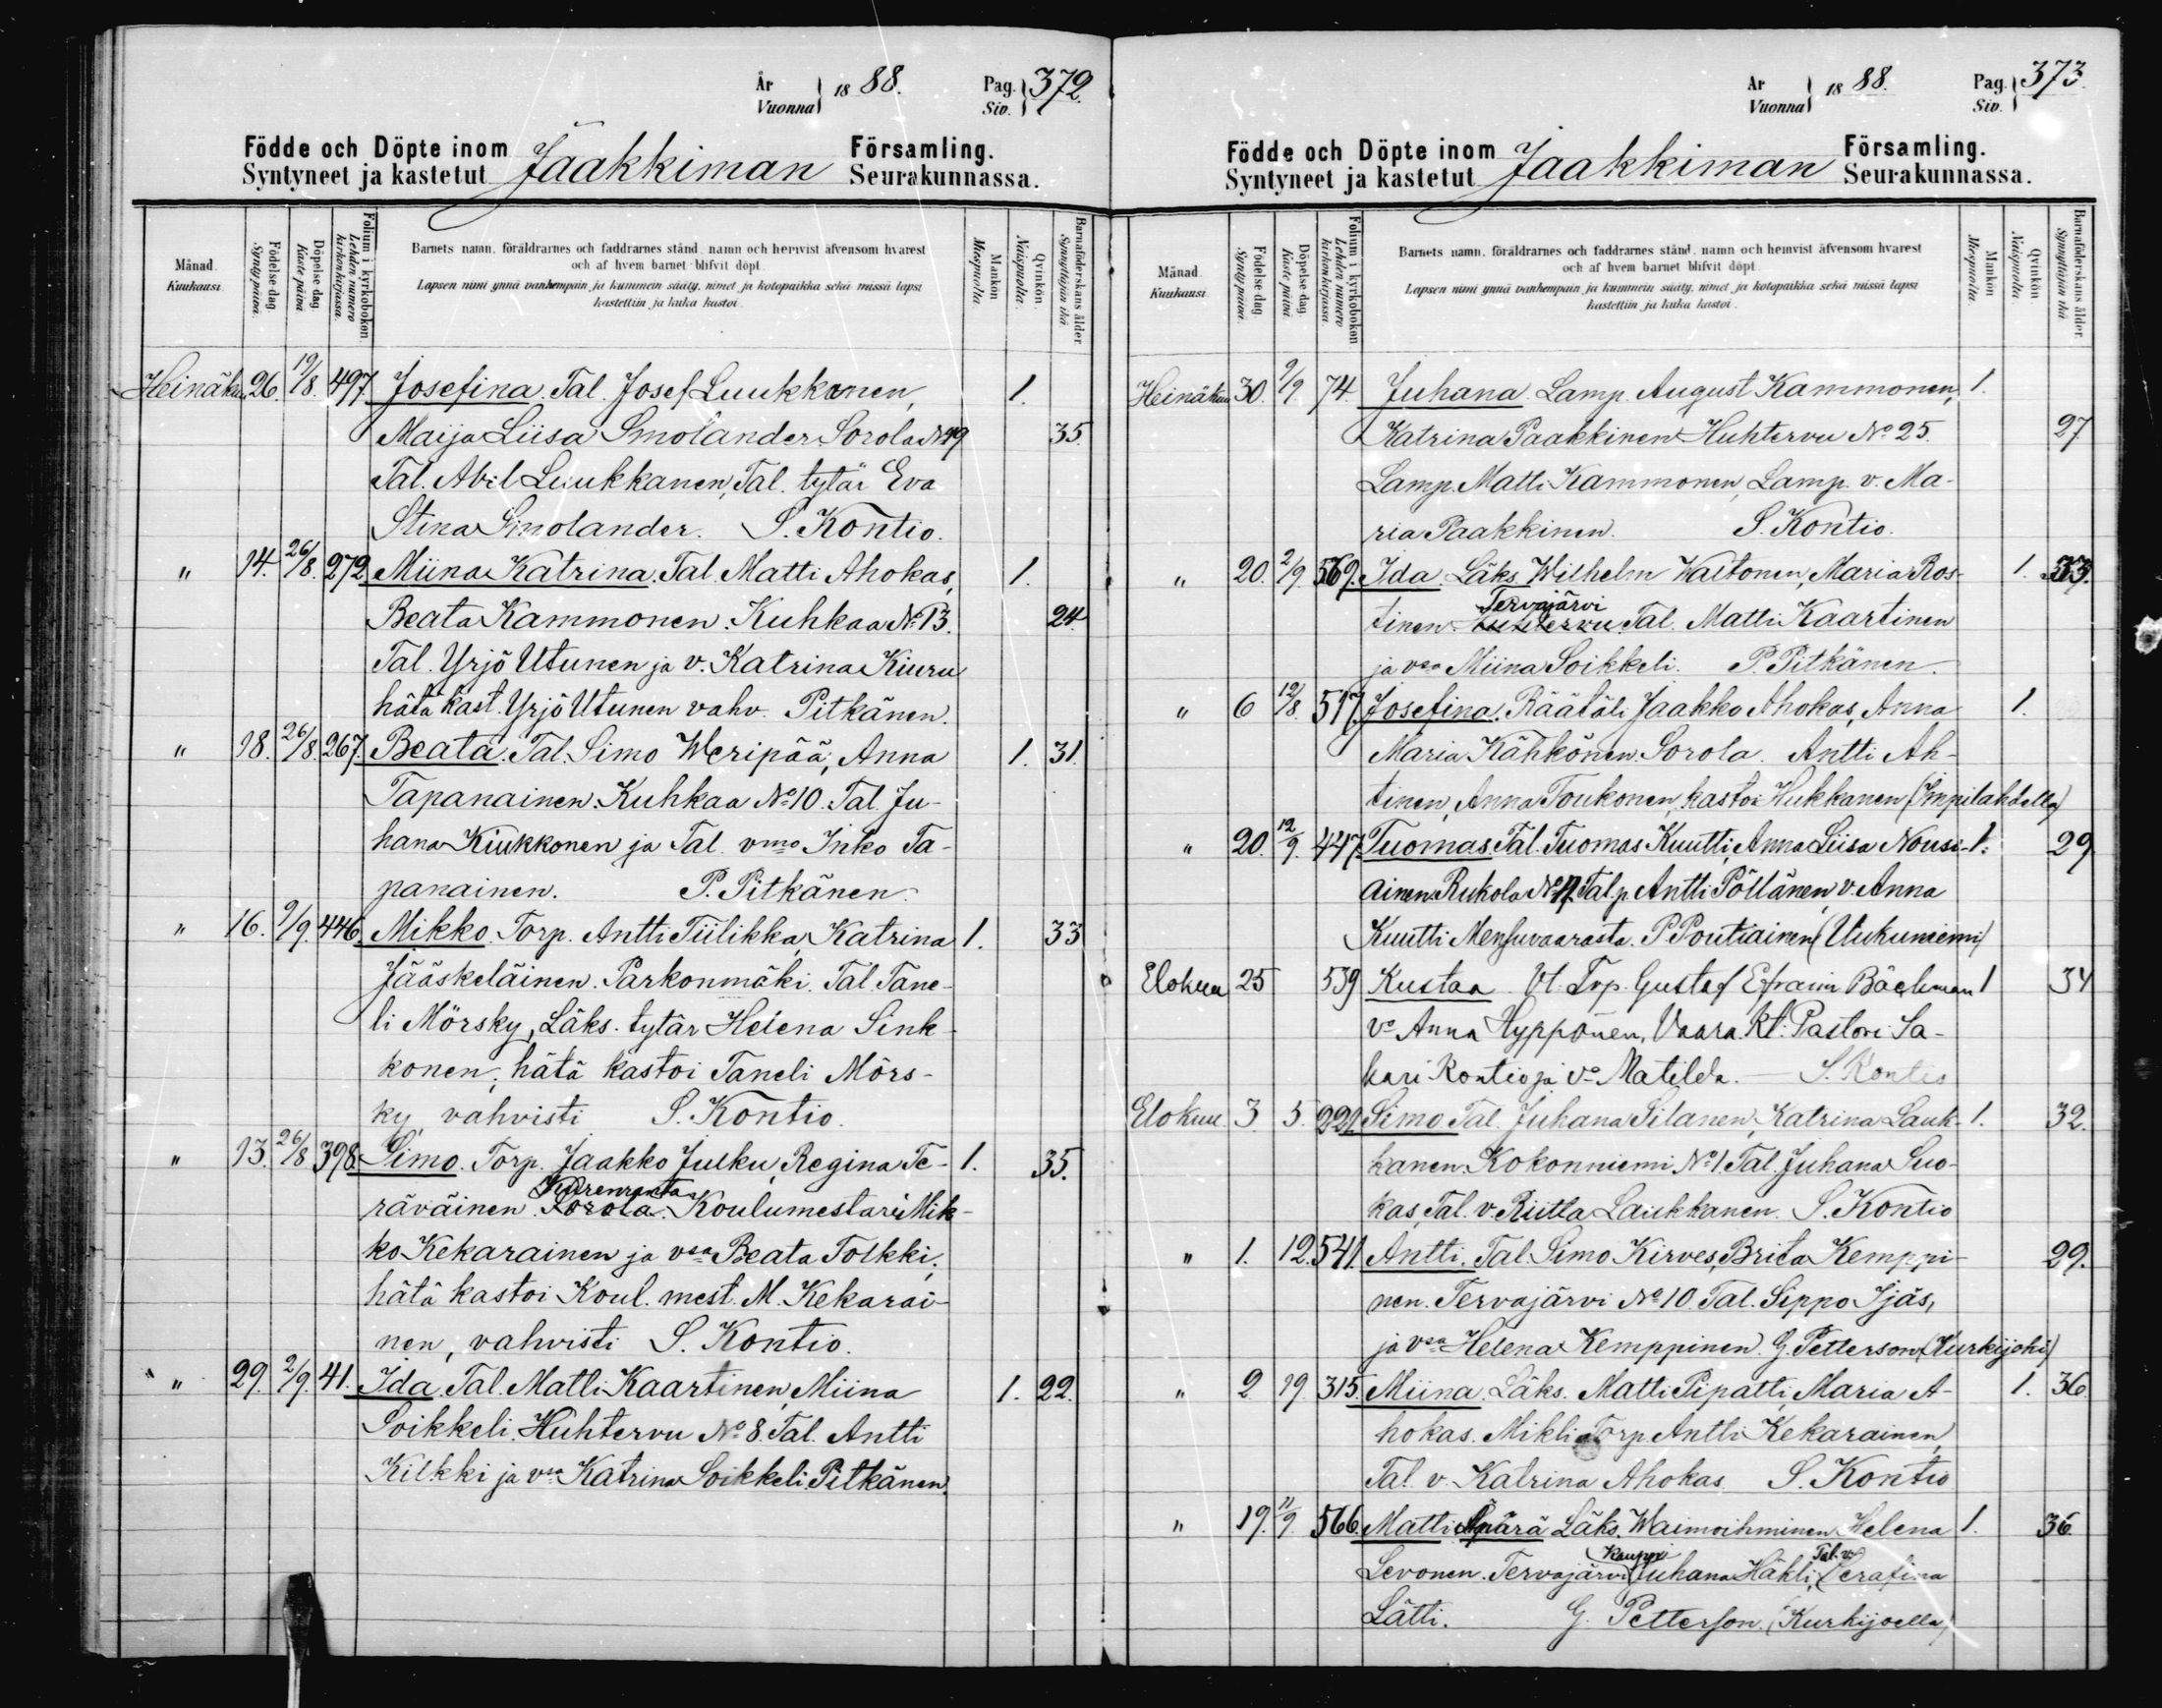 År Vuonna 1888. Pag. Siv. 372.
Födde och Döpte inom Jaakkiman Församling.
Syntyneet ja kastetut Seurakunnassa.
Månad. Kuukausi.
Födelse dag. Synty päivä.
Döpelse dag. Kaste päivä.
Folium i kyrkobokon. Lehden numero kirkonkirjassa.
Barnets namn, föräldrarnes och faddrarnes stånd, namn och hemvist äfvensom hvarest
och af hvem barnet blifvit döpt.
Lapsen nimi ynnä vanhempain ja kummein sääty, nimet ja kotopaikka sekä missä lapsi
kastettiin ja kuka kastoi.
Mankön. Miespuolta.
Qvinkön. Naispuolta.
Barnaföderskans ålder. Synnyttäjän ikä.
Heinäkuu 26. 19/8. 497. Josefina. Tal. Josef Luukkonen, 1.
Maija Liisa Smolander. Sorola No 49 35.
Tal. Abel Luukkanen, Tal. tytär Eva
Stina Smolander. S. Kontio.
" 14. 26/8. 272. Miina Katrina. Tal. Matti Ahokas, 1.
Beata Kammonen. Kuhkaa No 13. 24.
Tal. Yrjö Utunen ja v. Katrina Kiuru
hätä kast. Yrjö Utunen vahv. Pitkänen.
" 18. 26/8. 267. Beata. Tal. Simo Weripää, Anna 1. 31.
Tapanainen. Kuhkaa No 10. Tal. Ju-
hana Kiukkonen ja Tal. vmo Inko Ta-
panainen. P. Pitkänen.
" 16. 2/9. 446. Mikko. Torp. Antti Tiilikka, Katrina 1. 33
Jääskeläinen. Parkonmäki. Tal. Tane-
li Mörsky, Läks. tytär Helena Sink-
konen, hätä kastoi Taneli Mörs-
ky, vahvisti S. Kontio.
" 13. 26/8 398. Simo. Torp. Jaakko Julku, Regina Te- 1. 35.
Kurenranta
räväinen. Sorola. Koulumestari Mik-
ko Kekarainen ja vsa Beata Tolkki,
hätä kastoi Koul. mest. M. Kekarai-
nen, vahvisti S. Kontio.
" 29. 2/9. 41. Ida. Tal. Matti Kaartinen, Miina 1. 22.
Soikkeli. Huhtervu No 8. Tal. Antti
Kilkki ja vsa Katrina Soikkeli. Pitkänen.
År Vuonna 1888. Pag. Siv. 373.
Födde och Döpte inom Jaakkiman Församling.
Syntyneet ja kastetut Seurakunnassa.
Månad. Kuukausi.
Födelse dag. Synty päivä.
Döpelse dag. Kaste päivä.
Folium i kyrkobokon. Lehden numero kirkonkirjassa.
Barnets namn, föräldrarnes och faddrarnes stånd, namn och hemvist äfvensom hvarest
och af hvem barnet blifvit döpt.
Lapsen nimi ynnä vanhempain ja kummein sääty, nimet ja kotopaikka sekä missä lapsi
kastettiin ja kuka kastoi.
Mankön. Miespuolta.
Qvinkön. Naispuolta.
Barnaföderskans ålder. Synnyttäjän ikä.
Heinäkuu 30. 2/9. 74. Juhana. Lamp. August Kammonen, 1.
Katrina Paakkinen. Huhtervu No 25. 27
Lamp. Matti Kammonen, Lamp. v. Ma-
ria Paakkinen. S. Kontio.
" 20. 2/9. 569. Ida. Läks. Wilhelm Waltonen, Maria Ros- 1. 33.
Tervajärvi
tinen. Huhtervu. Tal. Matti Kaartinen
ja vsa Miina Soikkeli. P. Pitkänen.
" 6 12/8. 517. Josefina. Räätäli Jaakko Ahokas, Anna 1.
Maria Kähkönen. Sorola. Antti Ah-
tinen, Anna Toukonen, kastoi Hukkanen (Impilahdella)
" 20. 12/9. 447. Tuomas. Tal. Tuomas Kuutti, Anna Liisa Nousi- 1. 29
ainen. Rukola No 17. Tal.p. Antti Pöllänen, v. Anna
Kuutti Mensuvaarasta. P. Poutiainen (Uukuniemi)
Elokuu 25 539 Kustaa Vt. Trp. Gustaf Efraim Bäckman 1 34
vo Anna Hyppönen, Vaara. Kt: Pastori Sa-
kari Kontio ja vo Matilda. — S. Kontio
Elokuu. 3. 5. 221. Simo. Tal. Juhana Silanen, Katrina Lauk- 1. 32.
kanen. Kokonniemi No 1. Tal. Juhana Suo-
kas, Tal. v. Riitta Laukkanen. S. Kontio
" 1. 12. 541. Antti. Tal. Simo Kirves, Brita Kemppi- 29.
nen. Tervajärvi No 10. Tal. Sippo Ijäs,
ja vsa Helena Kemppinen. G. Petterson (Kurkijoki)
" 2 19. 315. Miina. Läks. Matti Pipatti, Maria A- 1. 36.
hokas. Mikli. Torp. Antti Kekarainen,
Tal. v. Katrina Ahokas. S. Kontio
" 19. 11/9. 566. Matti Äpärä Läks. Waimoihminen Helena 1. 36
Kauppi Tal. v.
Levonen. Tervajärvi. Juhana Hähli, Serafina
Lätti. G. Petterson. (Kurkijoella)